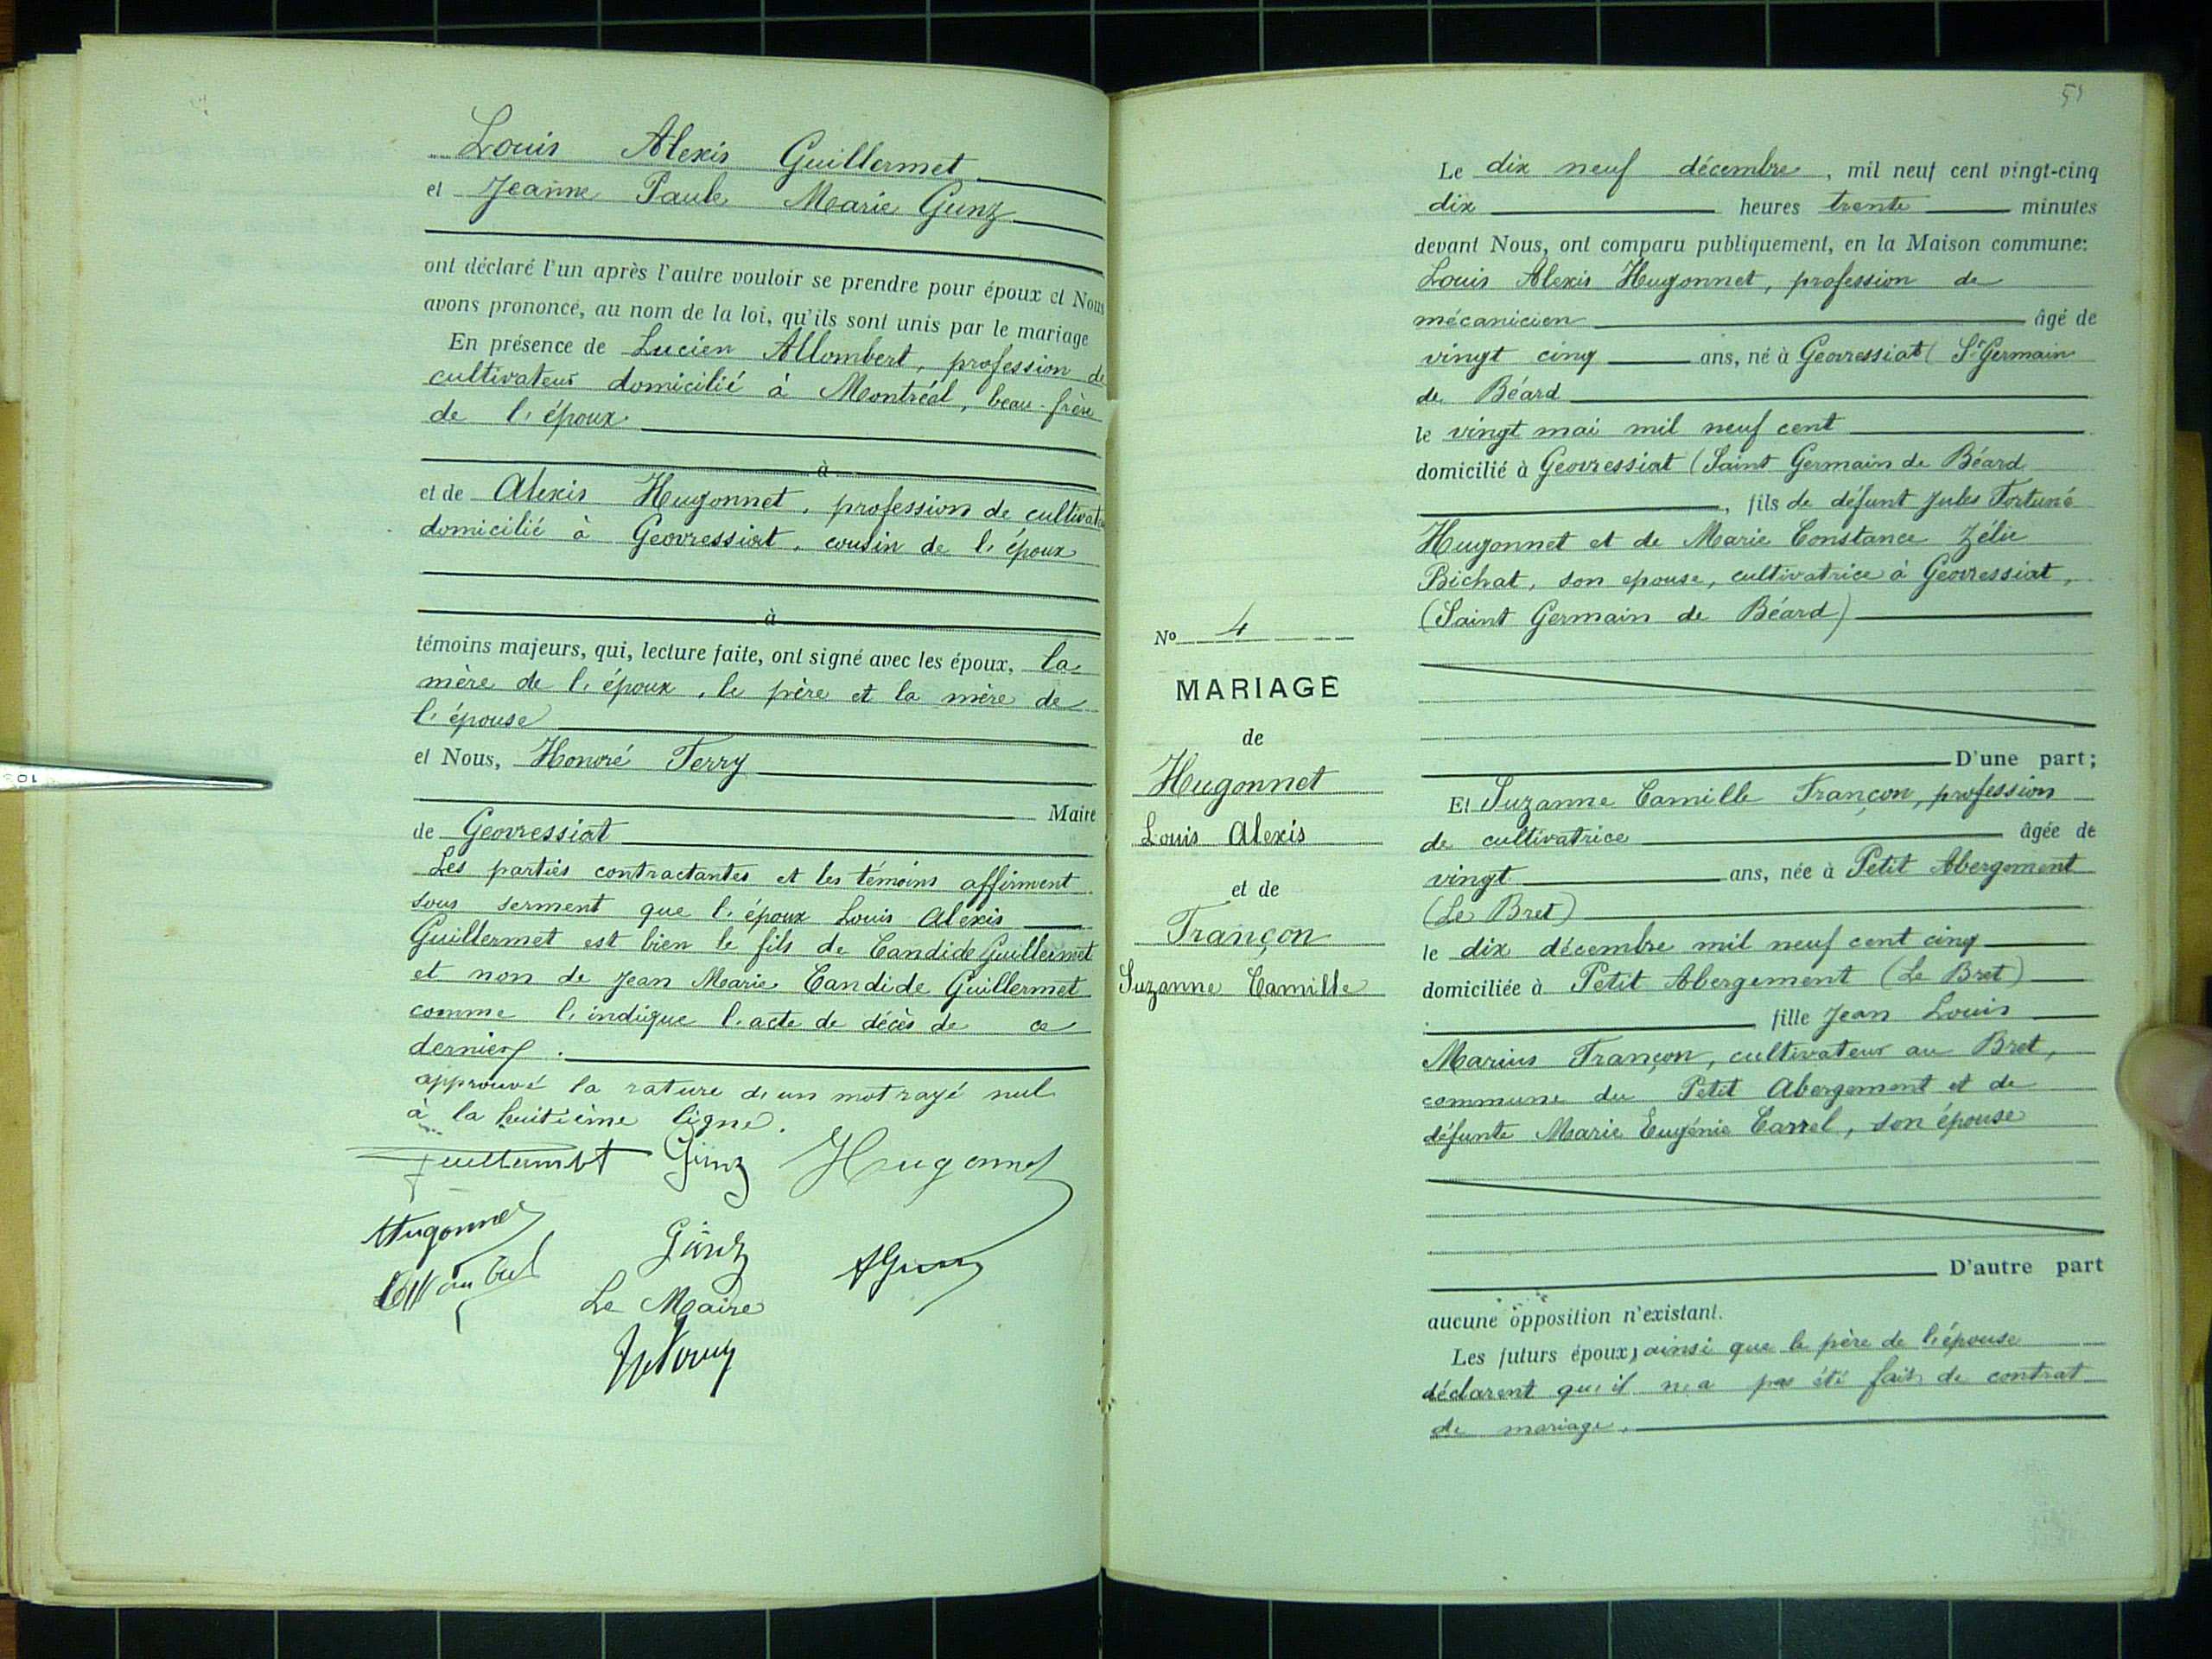 Louis Alexis Guillermet
et Jeanne Paule Marie Gunz
ont déclaré l'un après l'autre vouloir se prendre pour époux et Nous
avons prononcé, au nom de la loi, qu'ils sont unis par le mariage
En présence de Lucien Allombert, profession de
cultivateur domicilié à Montréal, beau-frère
de l'époux
à
et de Alexis Hugonnet, profession de cultivateur
domicilié à Géovressiat, cousin de l'époux
à
témoins majeurs, qui, lecture faite, ont signé avec les époux, la
mère de l'époux, le père et la mère de
l'épouse
et Nous, Honoré Ferry
Maire
de Géovressiat
Les parties contractantes et les témoins affirment
sous serment que l'époux Louis Alexis
Guillermet est bien le fils de Candide Guillermet
et non de Jean Marie Candide Guillermet
comme l'indique l'acte de décès de ce
dernier.
approuvé la rature d'un mot rayé nul
à la huitième ligne.
Guillermet Gunz Hugonnet
Hugonnet Gunz
Allombert
Le Maire
51
Le dix neuf décembre, mil neuf cent vingt-cinq
dix heures trente minutes
devant Nous, ont comparu publiquement, en la Maison commune:
Louis Alexis Hugonnet, profession de
mécanicien âgé de
vingt cinq ans, né à Géovressiat (St Germain
de Béard
le vingt mai mil neuf cent
domicilié à Géovressiat (Saint Germain de Béard
, fils de défunt Jules Fortuné
Hugonnet et de Marie Constance Zélie
Bichat, son epouse, cultivatrice à Géovressiat,
(Saint Germain de Béard)
D'une part;
Et Suzanne Camille Françon, profession
de cultivatrice âgée de
vingt ans, née à Petit Abergement
(Le Bret)
le dix décembre mil neuf cent cinq
domiciliée à Petit Abergement (Le Bret)
fille Jean Louis
Marius Françon, cultivateur au Bret,
commune du Petit Abergement et de
défunte Marie Eugénie Carrel, son épouse
D'autre part
aucune opposition n'existant.
Les futurs époux, ainsi que le père de l'épouse
déclarent qu'il n'a pas été fait de contrat
de mariage.
No 4
MARIAGE
de
Hugonnet
Louis Alexis
et de
Françon
Suzanne Camille